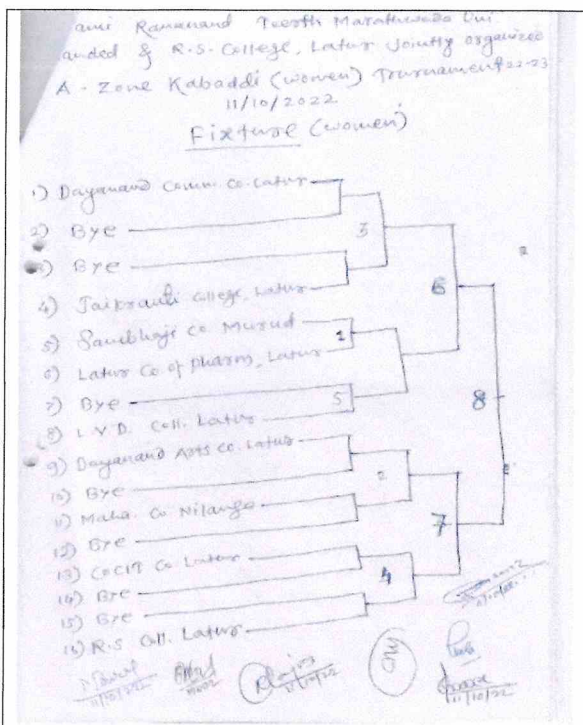 ami Ramanand Teerth Marathwada Uni
anded & R.S. College, Latur Jointly organized
A - Zone Kabaddi (women) Tournament 22-23
11/10/2022
Fixture (women)
1) Dayanand Comm. Co. Latur
2) Bye
3) Bye
4) Jaikranti College, Latur
5) Sambhaji Co. Murud
6) Latur Co of Pharm, Latur
7) Bye
8) L.V.D. Coll. Latur
9) Dayanand Arts Co. Latur
10) Bye
11) Maha. Co Nilanga
12) Bye
13) COCIT Co. Latur
14) Bye
15) Bye
16) R.S Coll. Latur
3
1
5
2
4
6
7
8
11/10/22
11/10/22
11/10/22